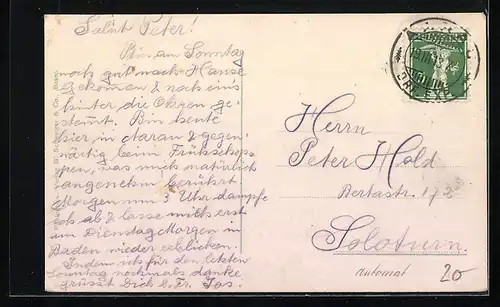 Salut Peter!
Bin am Sonntag
noch gut nach Hause
gekomen & noch eins
hinter die Ohren ge-
stemmt. Bin heute
hier, in & gegen-
wärtig beim Frühschop-
pen, was mich natürlich
angenehm berührt.
Morgen um 3 Uhr dampfe
ich ab & lasse mich erst
am Dienstag Morgen in
Baden wieder erblicken.
Indem ich für den letzten
Sonntag nochmals danke
grüsst Dich d. Fr. Jos.
Herrn
Peter Hold
Bertastr.
Soloturn.
automat
20